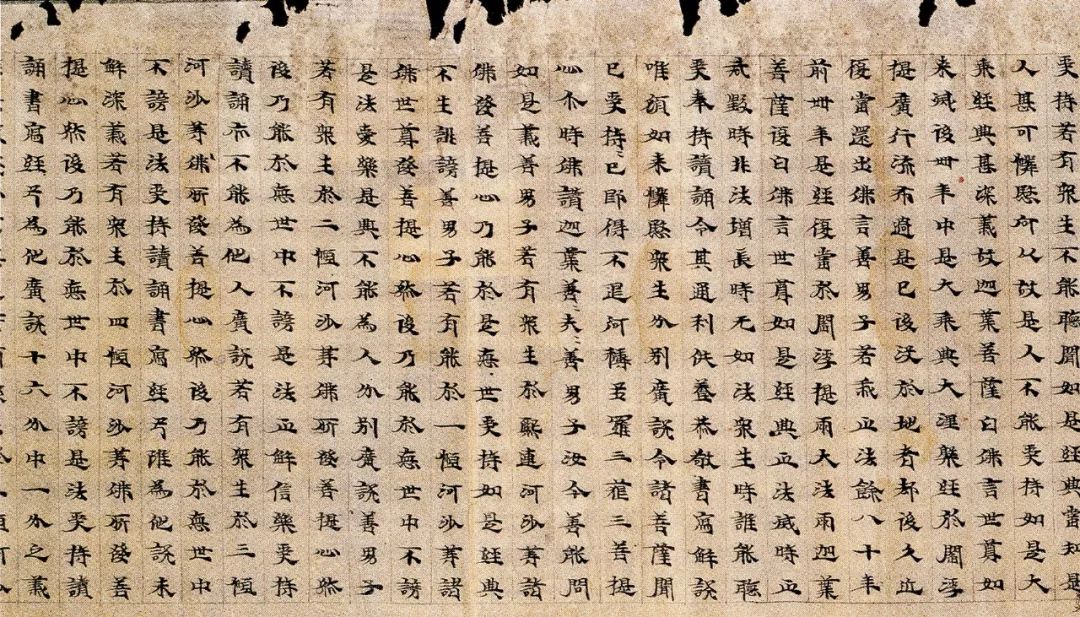 受持若有衆生不能聽聞如是經典當知是
人甚可憐愍何以故是人不能受持如是大
乘經典甚深義故迦葉菩薩白佛言世尊如
来滅後卌年中是大乘典大涅槃經於閻浮
提廣行流布過是已後沒於地者却後久近
復當還出佛言善男子若我正法餘八十年
前卌年是經復當於閻浮提雨大法雨迦葉
菩薩復白佛言世尊如是經典正法滅時正
戒毀時非法增長時无如法衆生時誰能聽
受奉持讀誦令其通利供養恭敬書寫解說
唯願如来憐愍衆生分別廣說令諸菩薩聞
已受持〻已即得不退阿耨多羅三藐三菩提
心尒時佛讚迦葉善〻哉〻善男子汝今善能問
如是義善男子若有衆生於熙連河沙等諸
佛發菩提心乃能於是惡世受持如是經典
不生誹謗善男子若有能於一恒河沙等諸
佛世尊發菩提心然後乃能於惡世中不謗
是法愛樂是典不能為人分別廣說善男子
若有衆生於二恒河沙等佛所發菩提心然
後乃能於惡世中不謗是法正解信樂受持
讀誦亦不能為他人廣說若有衆生於三恒
河沙等佛所發菩提心然後乃能於惡世中
不謗是法受持讀誦書寫經卷雖為他說未
解深義若有衆生於四恒河沙等佛所發菩
提心然後乃能於惡世中不謗是法受持讀
誦書寫經卷為他廣說十六分中一分之義